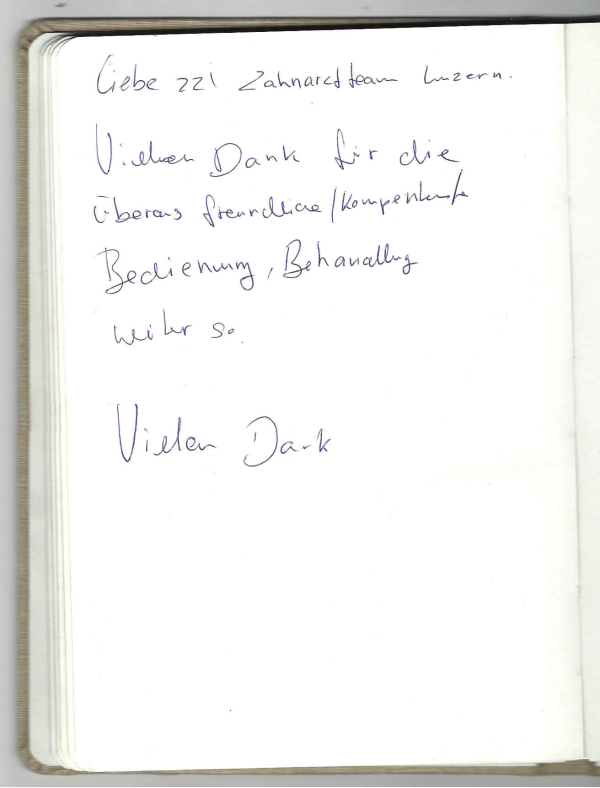 Liebe zzl Zahnarztteam Luzern.
Vielen Dank für die
überaus freundliche/kompentente
Bedienung, Behandlung
weiter so.
Vielen Dank